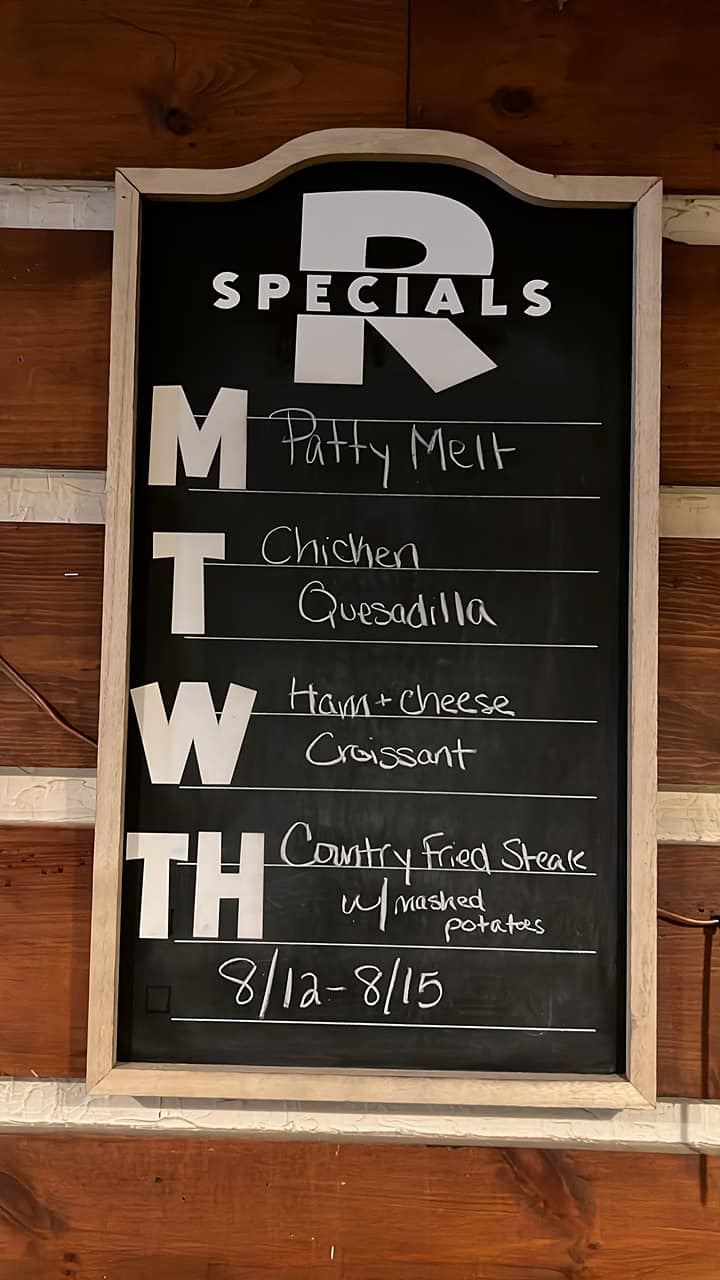 R
SPECIALS
M Patty Melt
T Chicken
Quesadilla
W Ham + cheese
Croissant
TH Country Fried Steak
w/ mashed
potatoes
8/12-8/15